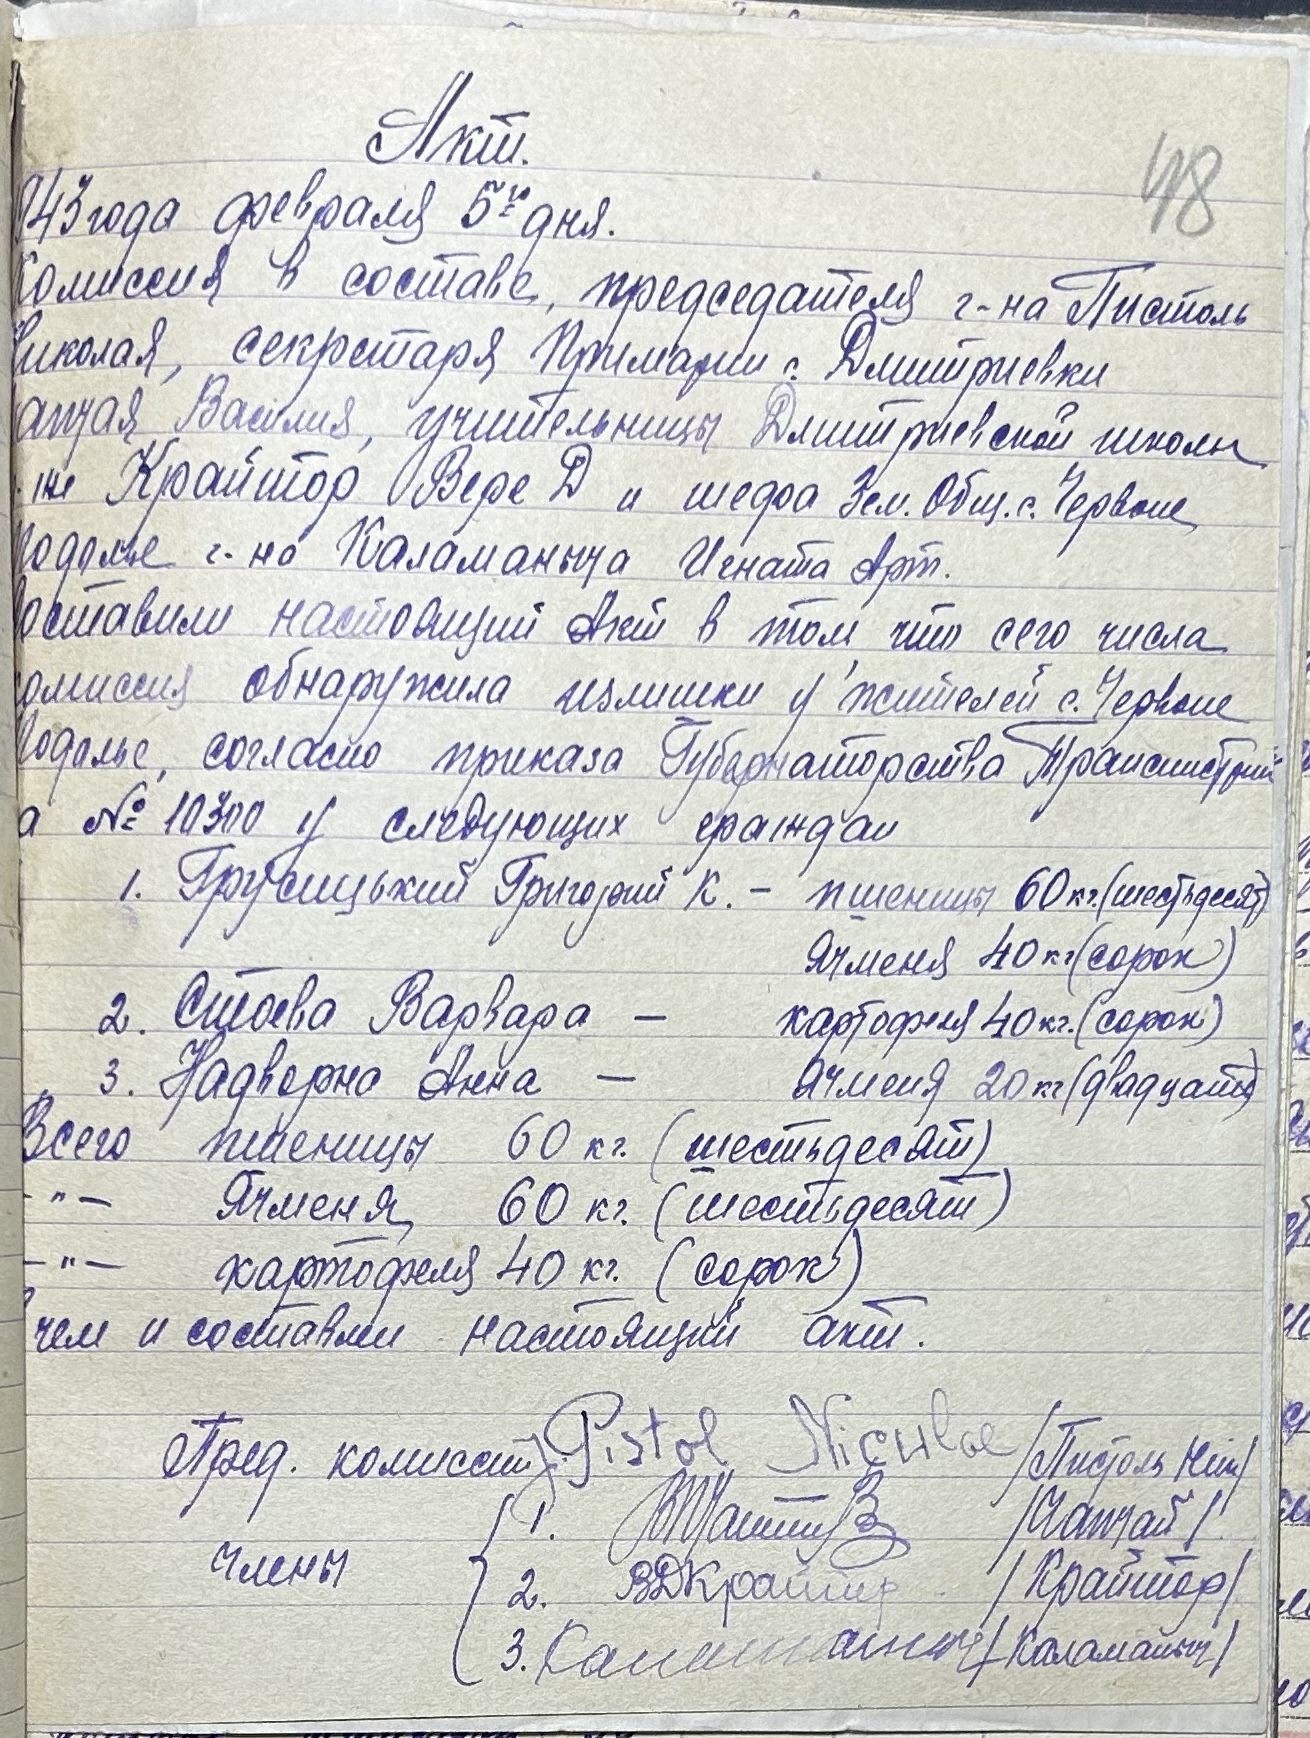 Акт.
48
943 года февраля 5го дня.
Комиссия в составе, председателя г-на Пистоль
Николая, секретаря Примарии с. Дмитриевки
Василия, учительницы Дмитриевской школы
Крайтор Вере Д и шефа Зем. Общ. с. Червоне
Подолье г-на Каламаныча Игната Арт.
составили настоящий Акт в том что сего числа
комиссия обнаружила излишки у жителей с. Червоне
Подолье, согласно приказа Губернаторства Транснистрии
а № 10300 у следующих граждан
1. Григорий К. - пшеницы 60 кг. (шестьдесят)
Ячменя 40 кг (сорок)
2. Стоева Варвара — картофеля 40 кг. (сорок)
3. Надворна Анна — Ячменя 20 кг (двадцать)
Всего пшеницы 60 кг. (шестьдесят)
-"- Ячменя 60 кг. (шестьдесят)
-"- картофеля 40 кг. (сорок)
В чем и составили настоящий акт.
Пред. комиссии Pistol Niculae /Пистоль Ник/
1. /Чапчай/
члены
2. ВДКрайтор /Крайтор/
3. Каламаныч /Каламаныч/